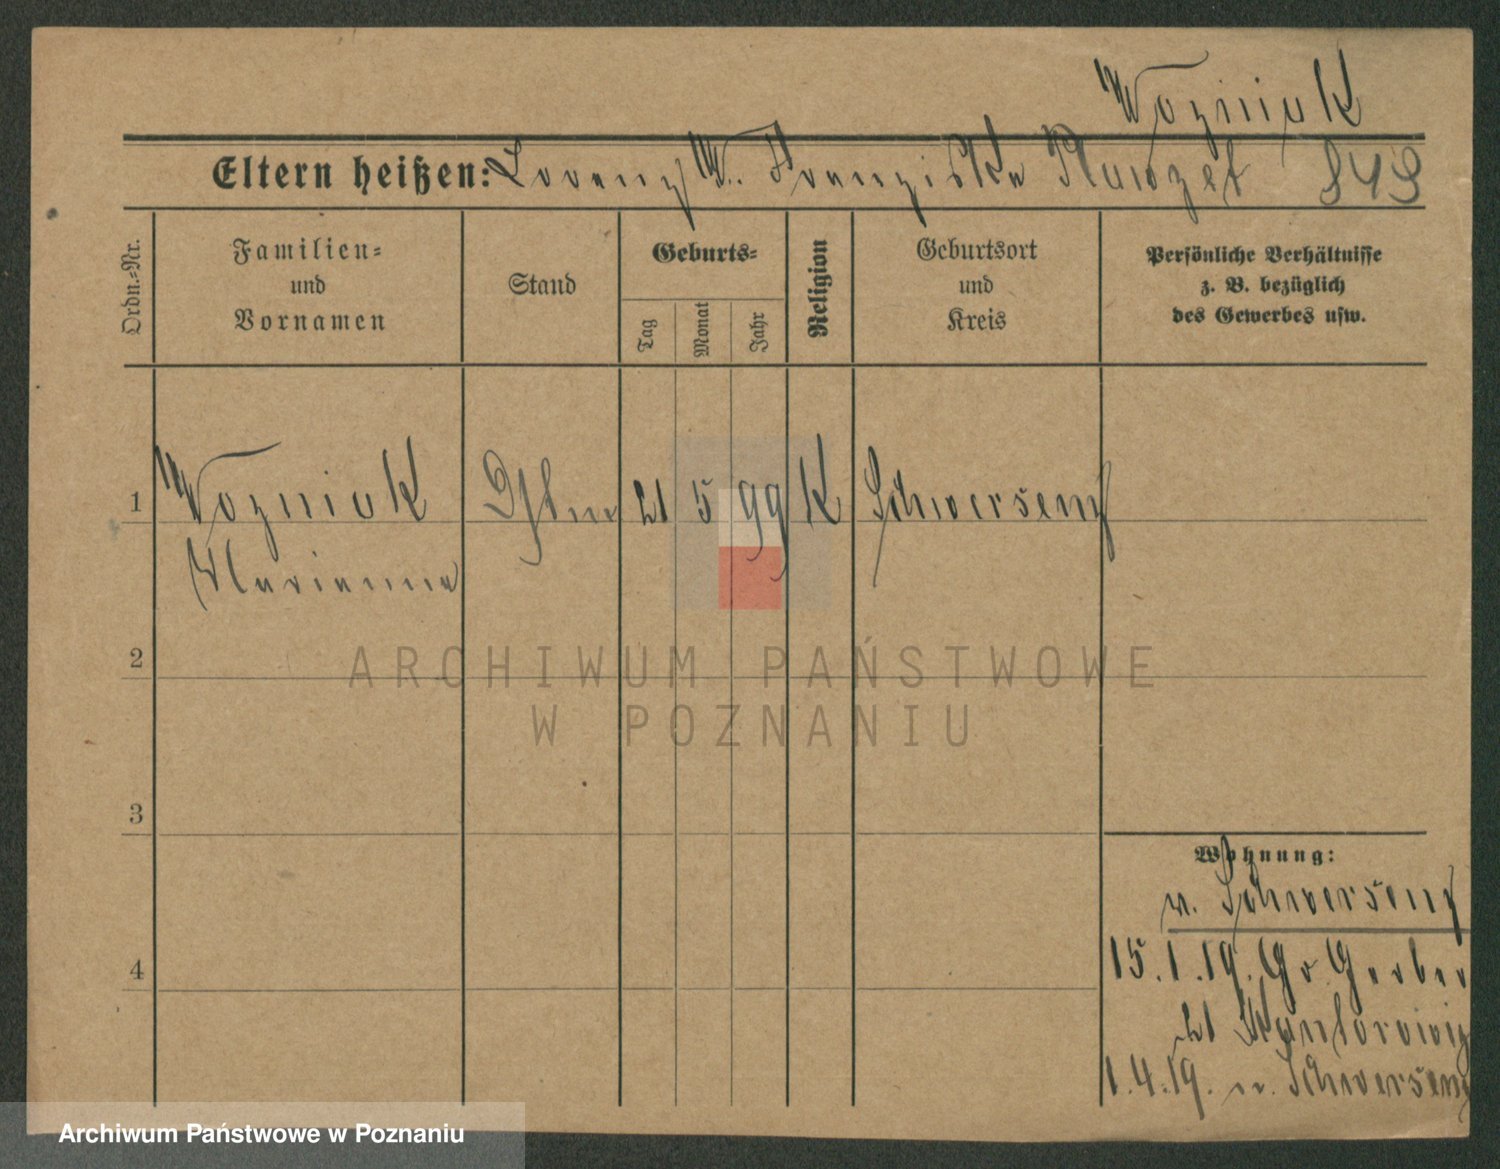 Wozniak
Eltern heißen: Lorenz W. Franziska 849
Ordn.-Nr.
Familien-
und
Vornamen
Stand
Geburts-
Tag
Monat
Jahr
Religion
Geburtsort
und
Kreis
Persönliche Verhältnisse
z. B. bezüglich
des Gewerbes usw.
1 Wozniak 21 5 99 K Schwersenz
Marianna
2
ARCHIWUM PAŃSTWOWE
W POZNANIU
3
Wohnung:
v. Schwersenz
15.1.19. Gr. Gerber
21 Kantorowicz
4
1.4.19. n. Schwersenz
Archiwum Państwowe w Poznaniu